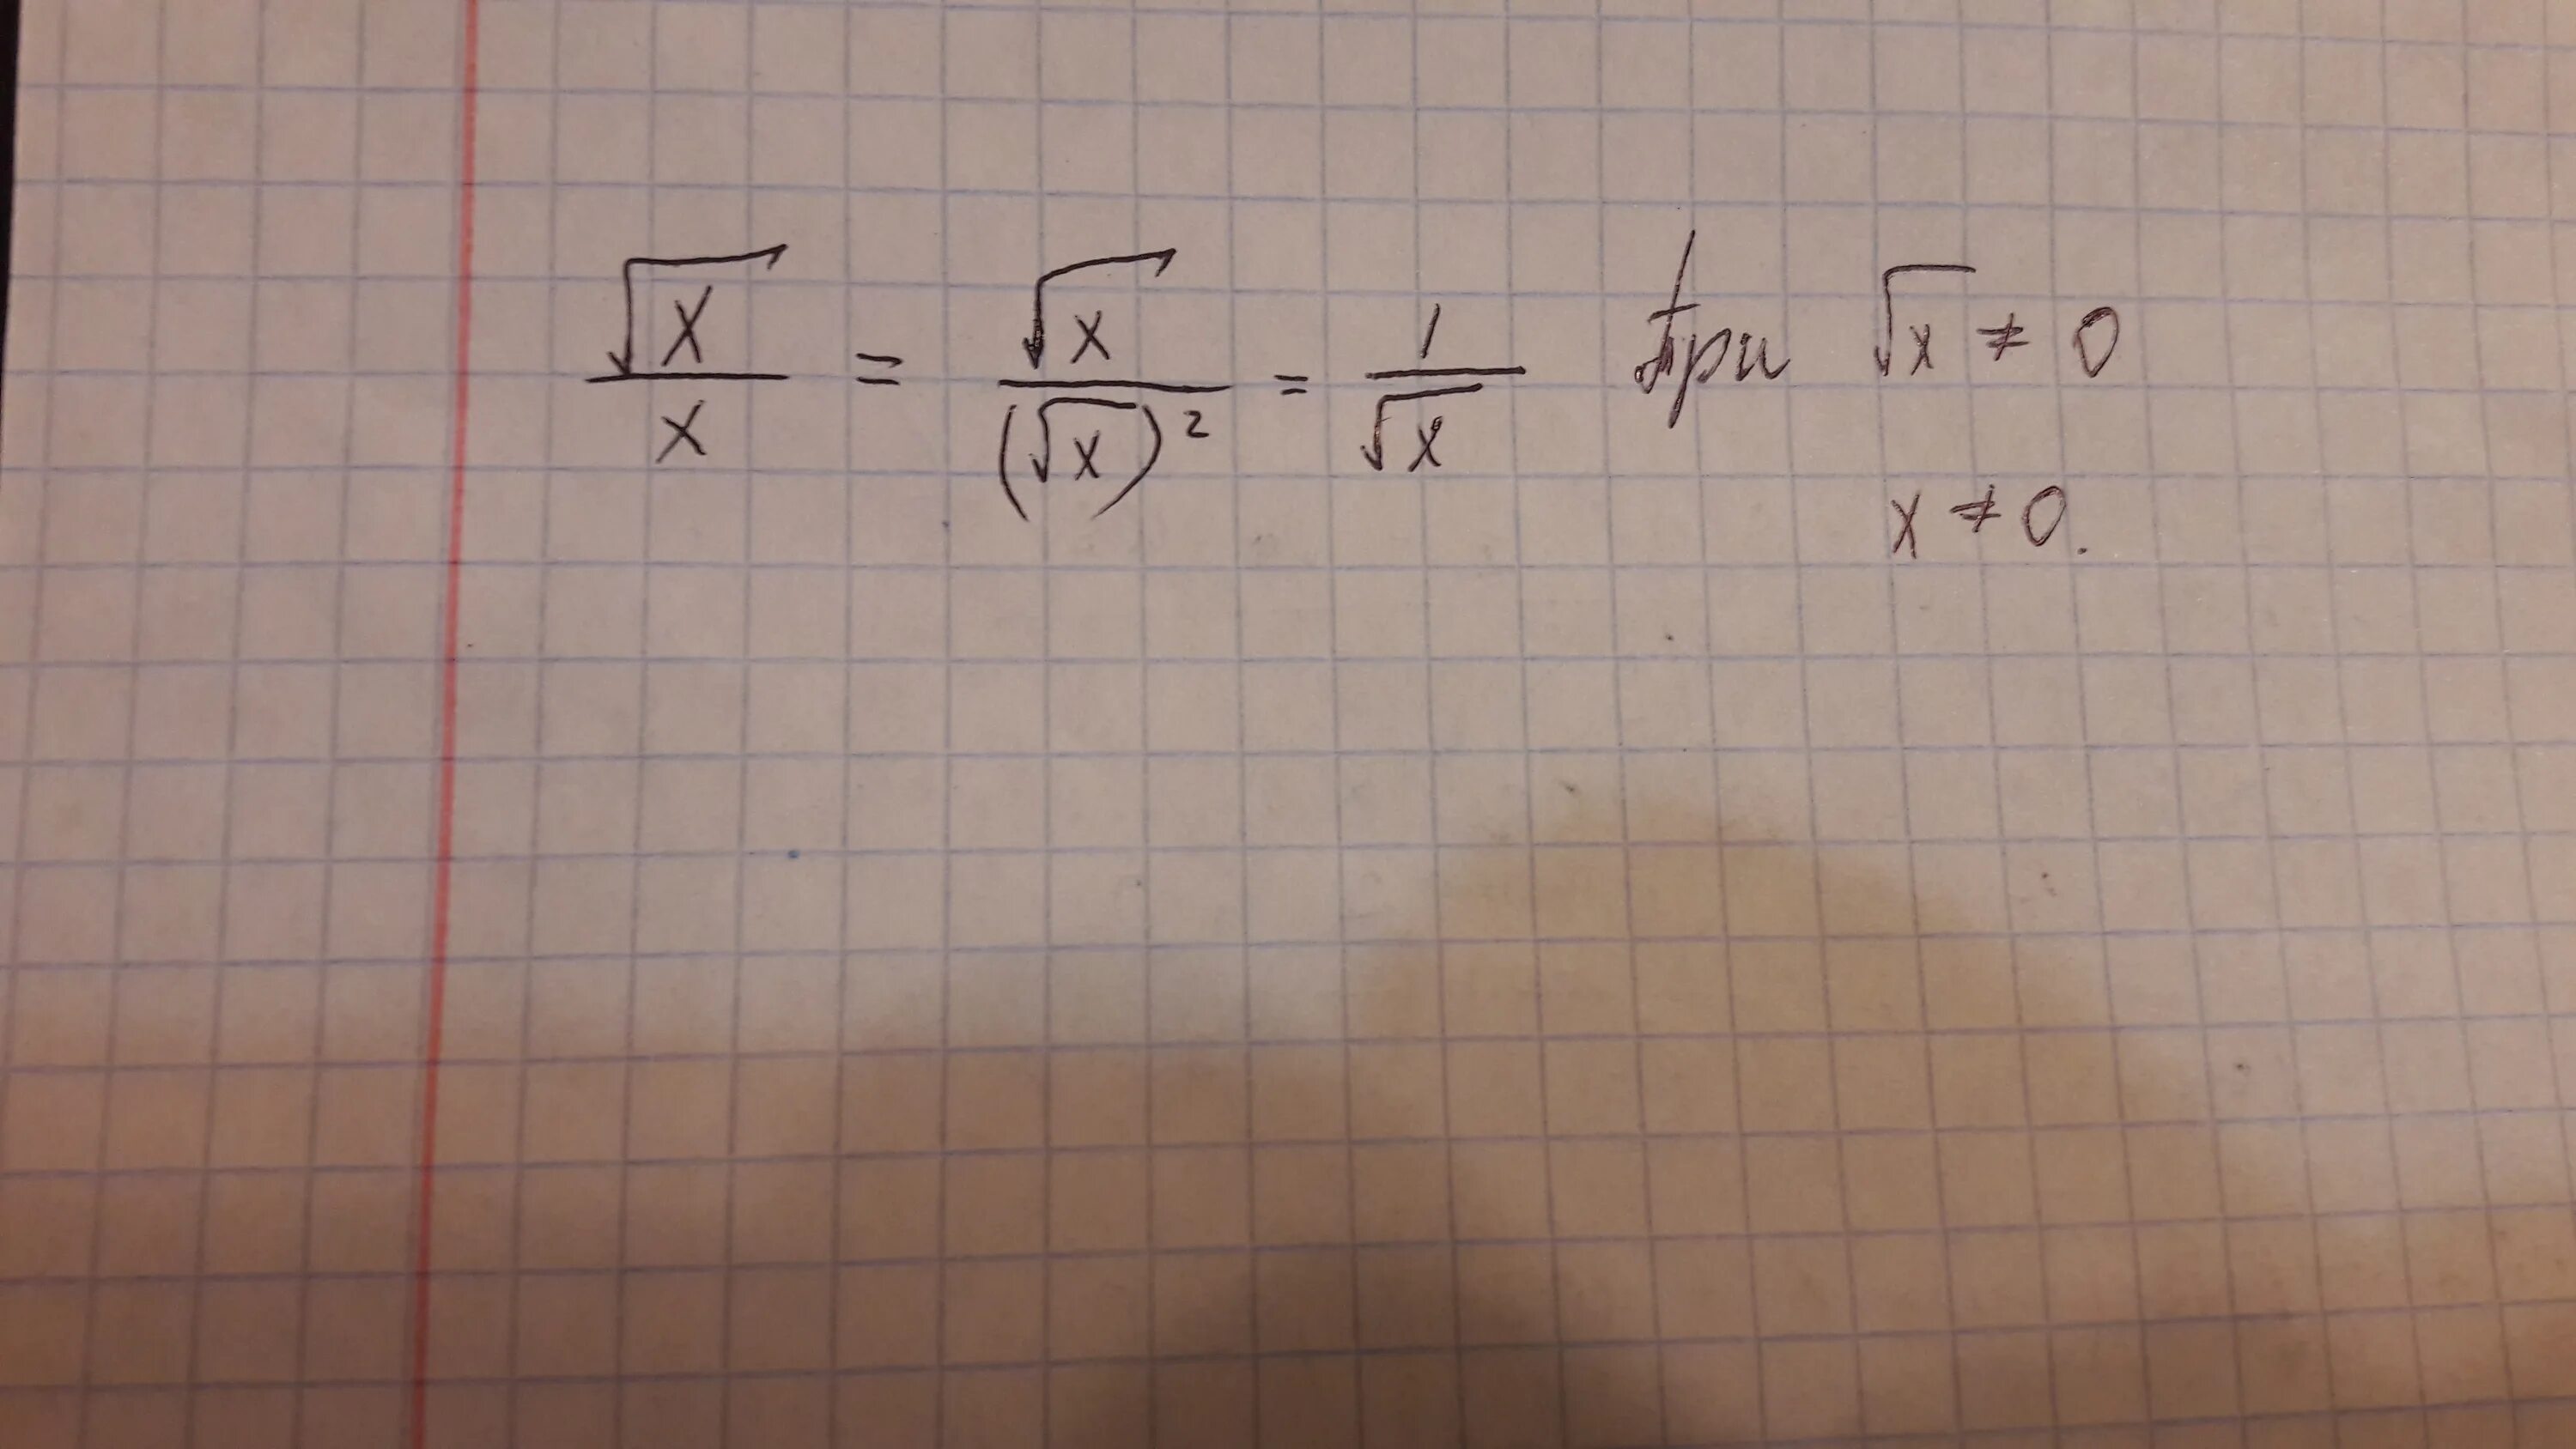 √x / x = √x / (√x)² = 1 / √x при √x ≠ 0
x ≠ 0.